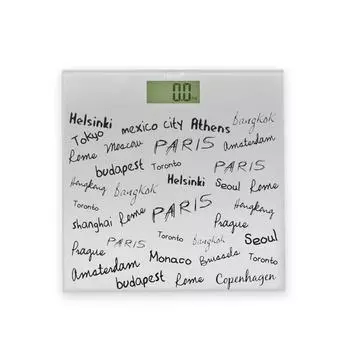 0.0
Helsinki mexico city Athens bangkok
Tokyo
Rome Moscow PARIS Amsterdam
budapest Toronto
Hongkong Bangkok Helsinki Seoul Rome
Toronto PARIS Hongkong
shanghai Rome
Prague PARIS Toronto bangkok Prague Seoul
Amsterdam Monaco Brussels Toronto
budapest Rome Copenhagen